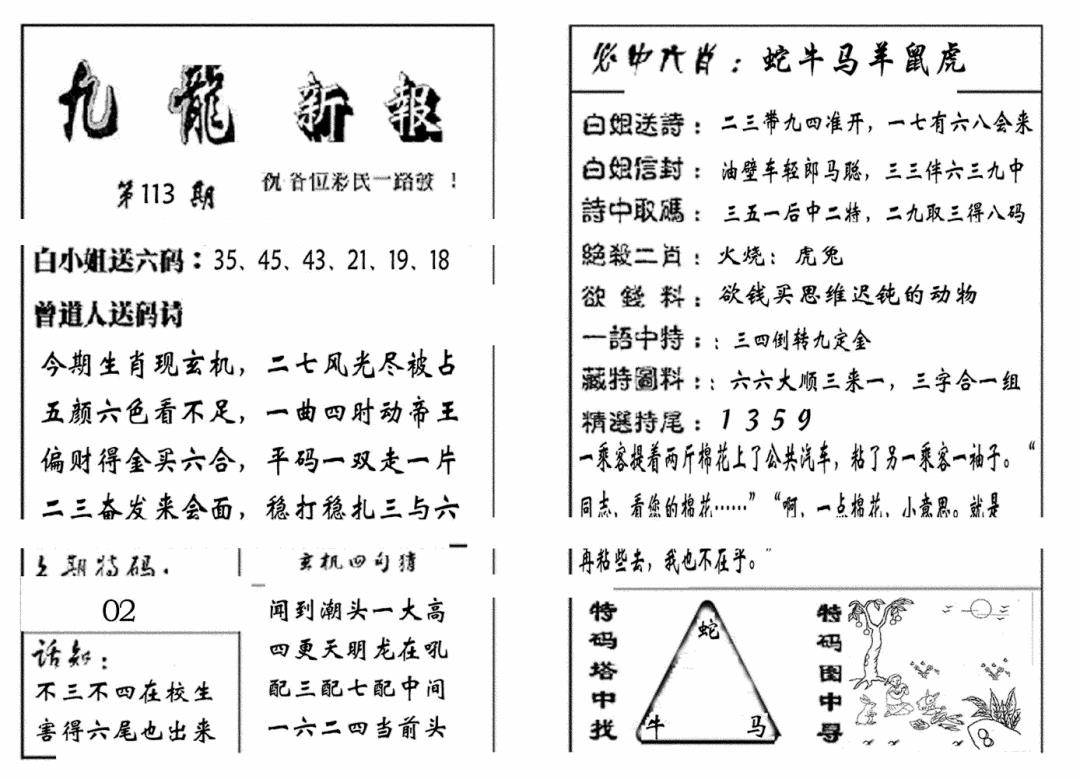 九龍新報
第113期
祝各位彩民一路發！
白小姐送六码：35、45、43、21、19、18
曾道人送码诗
今期生肖现玄机，二七风光尽被占
五颜六色看不足，一曲四时动帝王
偏财得金买六合，平码一双走一片
二三奋发来会面，稳打稳扎三与六
上期特码：
02
话知：
不三不四在校生
害得六尾也出来
玄机四句猜
闻到潮头一大高
四更天明龙在吼
配三配七配中间
一六二四当前头
必中六肖：蛇牛马羊鼠虎
白姐送詩：二三带九四准开，一七有六八会来
白姐信封：油壁车轻郎马聪，三三伴六三九中
詩中取碼：三五一后中二特，二九取三得八码
絕殺二肖：火烧：虎兔
欲錢料：欲钱买思维迟钝的动物
一語中特：：三四倒转九定金
藏特圖料：：六六大顺三来一，三字合一组
精選特尾：1 3 5 9
一乘客提着两斤棉花上了公共汽车，粘了另一乘客一袖子。“
同志，看您的棉花……”“啊，一点棉花，小意思。就是
再粘些去，我也不在乎。”
特码塔中找
蛇
牛 马
特码图中尋
8